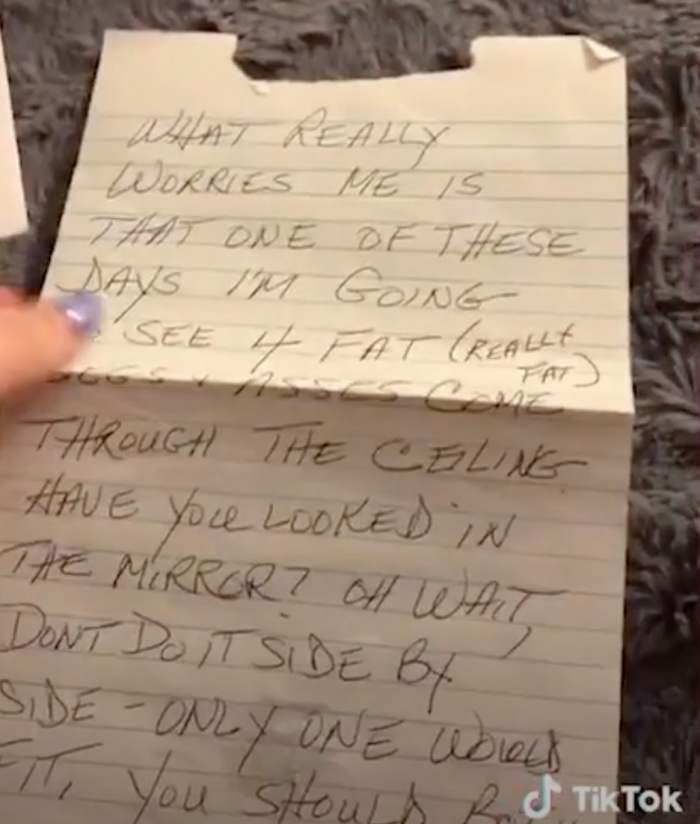 WHAT REALLY
WORRIES ME IS
THAT ONE OF THESE
DAYS I'M GOING
SEE 4 FAT (REALLY
FAT)
& ASSES COME
THROUGH THE CEILING
HAVE YOU LOOKED IN
THE MIRROR? OH WAIT,
DONT DO IT SIDE BY
SIDE - ONLY ONE WOULD
FIT, YOU SHOULD
TikTok